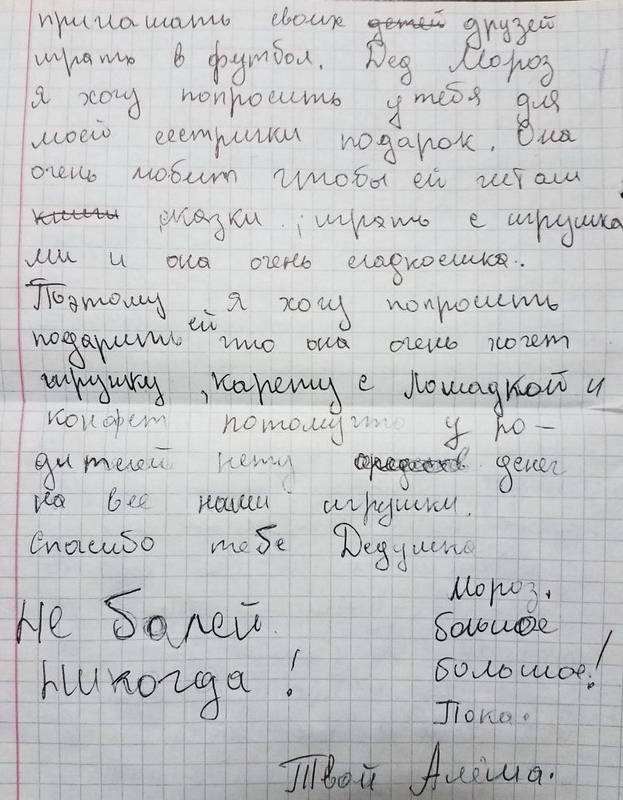 приглашать своих детей друзей
играть в футбол. Дед Мороз
я хочу попросить у тебя для
моей сестрички подарок. Она
очень любит чтобы ей читали
сказки, играть с игрушка
ми и она очень сладкоешка..
Поэтому я хочу попросить
подарить ей что она очень хочет
игрушку, карету с лошадкой и
конфет потомучто у ро-
дителей нету денег
на все наши игрушки.
Спасибо тебе Дедушка
Мороз.
Не болей большое
никогда! большое!
Пока.
Твой Алёша.